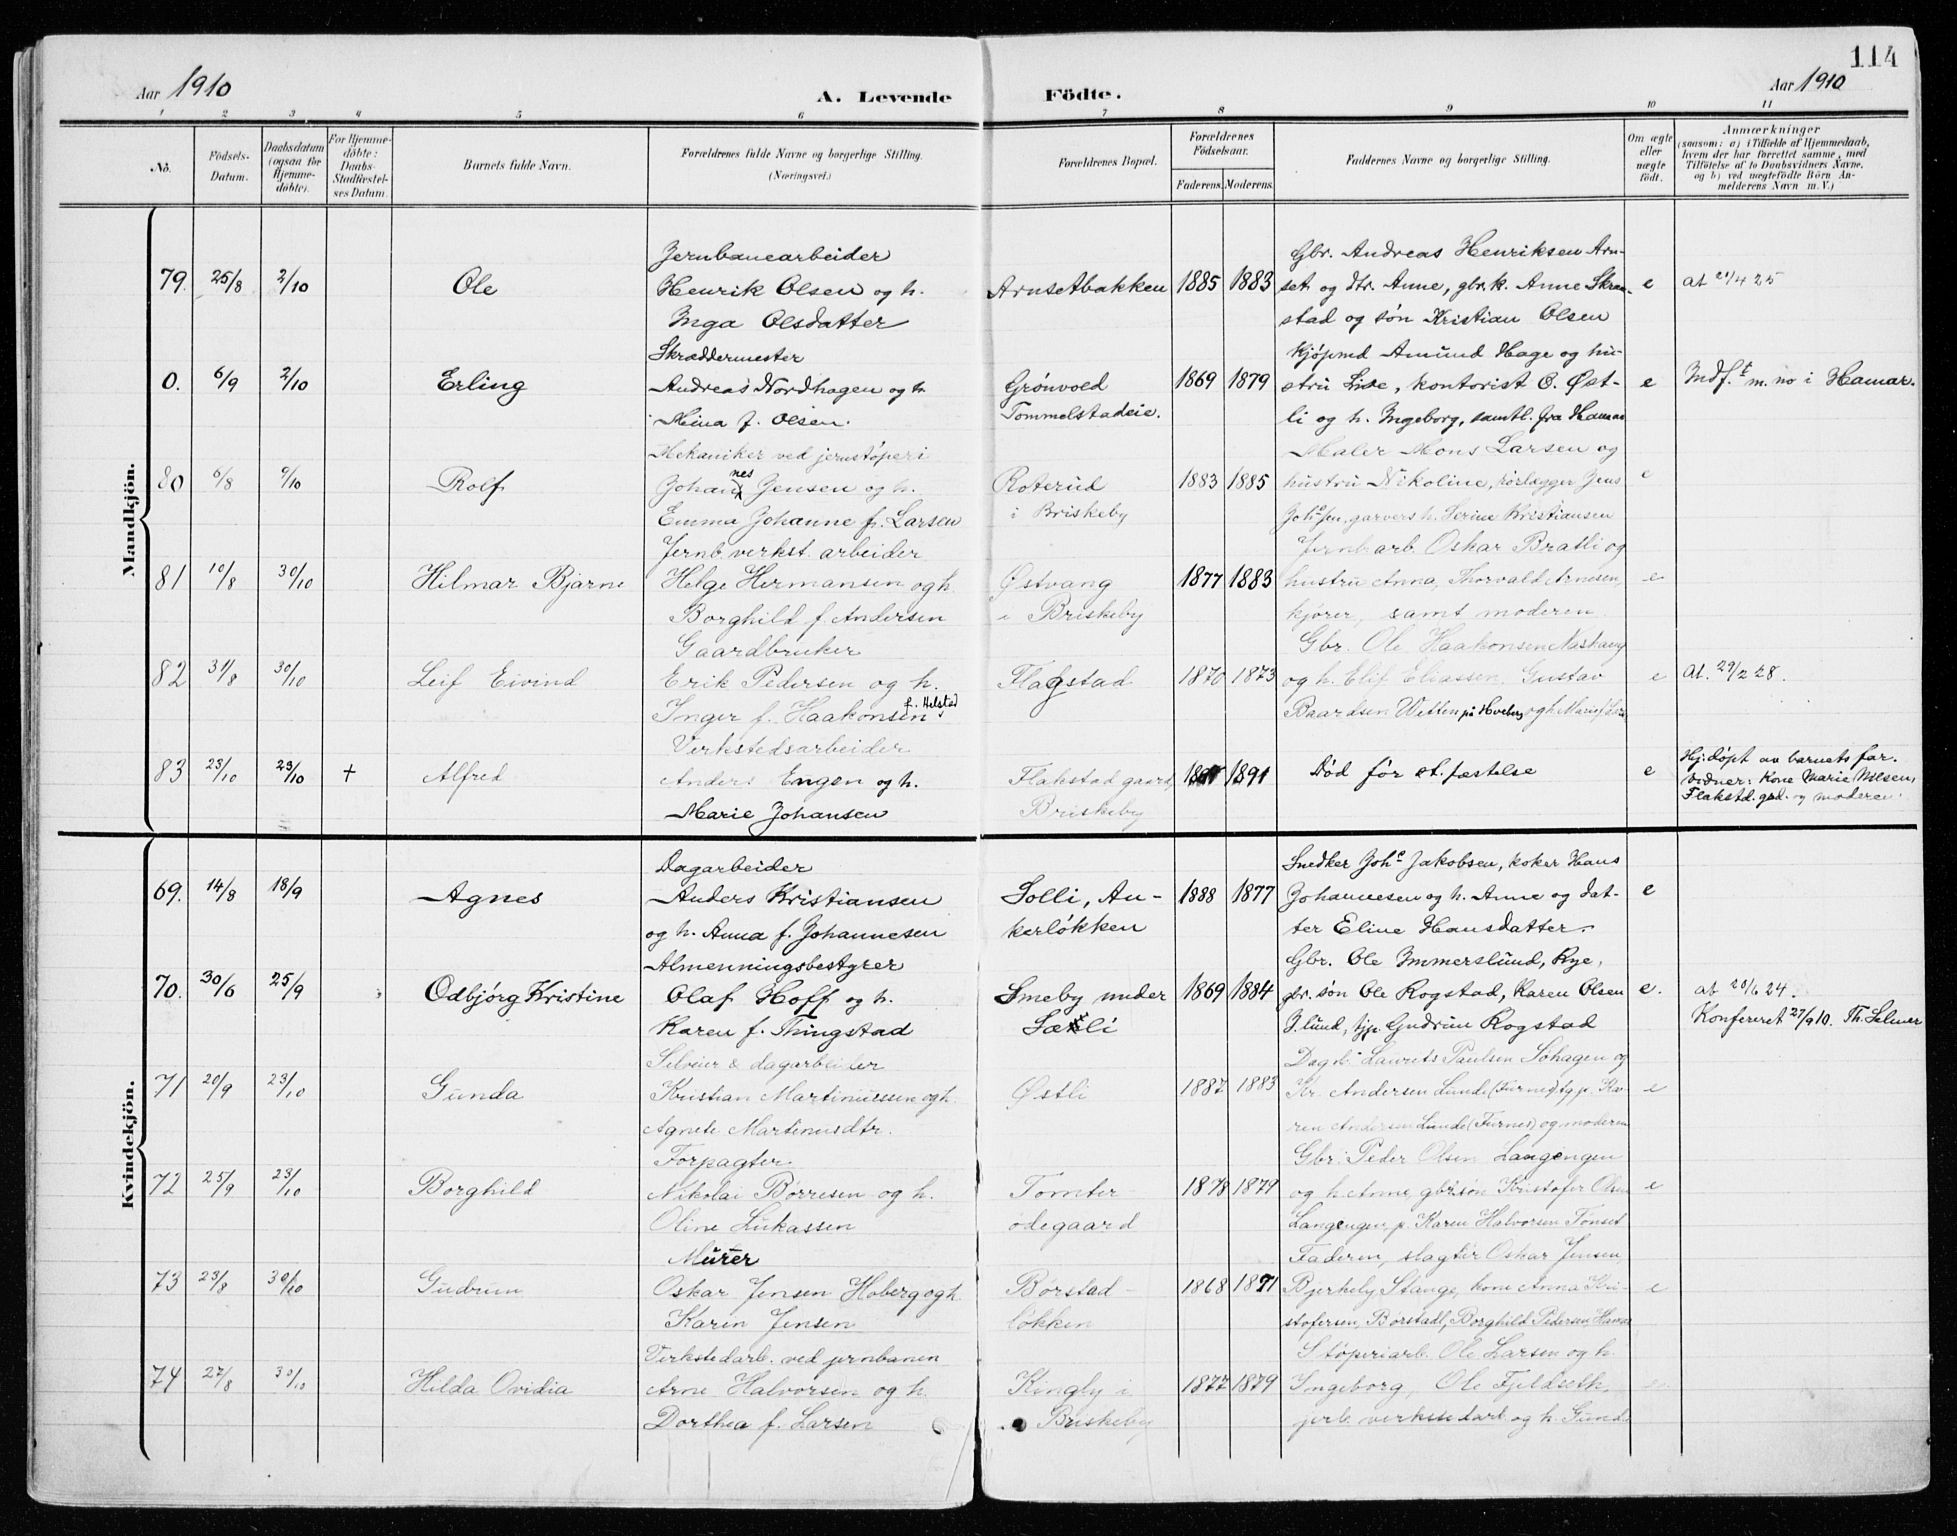 114
Aar 1910
A. Levende Födte.
Aar 1910
1 2 3 4 5 6 7 8 9 10 11
No.
Födsels-Datum.
Daabsdatum (ogsaa for Hjemmedöbte).
For Hjemmedöbte: Daabs-Stadfæstelses Datum.
Barnets fulde Navn.
Forældrenes fulde Navne og borgerlige Stilling.
(Næringsvei.)
Forældrenes Bopæl.
Forældrenes Födselsaar.
Faderens. Moderens.
Faddernes Navne og borgerlige Stilling.
Om ægte eller uægte födt.
Anmærkninger
(saasom: a) i Tilfælde af Hjemmedaab,
hvem der har forrettet samme, med
Tilföielse af to Daabsvidners Navne,
og b) ved uægtefödte Börn An-
melderens Navn m. V.)
Mandkjön.
Jernbanearbeider
Gbr. Andreas Henriksen Arn-
79. 25/8 2/10 Ole Henrik Olsen og h. Arnsetbakken 1885 1883 set og dtr. Anne, gbr.k. Anne Skram- e at 21/4 25
Inga Olsdatter
stad og søn Kristian Olsen
Skræddermester
Kjøpmd Amund Hage og hu-
0. 6/9 2/10 Erling Andreas Nordhagen og h. Grønvold 1869 1879 stru Lise, kontorist O. Øst- e Indf.t m. no i Hamar.
Mina f. Olsen. Tommelstadeie.
li og h. Ingeborg, samtl. fra Hamar
Mekaniker ved jernstøperi
Maler Mons Larsen og
80 6/8 9/10 Rolf Johannes Jensen og h. Roterud 1883 1885 hustru Nikoline, rørlægger Jens e
Emma Johanne f. Larsen i Briskeby
garvers h. Serine Kristiansen
Jernb. verkst. arbeider
Jernb.arb. Oskar Bratli og
81 10/8 30/10 Hilmar Bjarne Helge Hermansen og h. Østvang 1877 1883 hustru Anna, Thorvald Arnesen, e
Borghild f. Andersen i Briskeby
kjører, samt moderen
Gaardbruker
Gbr. Ole Haakonsen Nashaug
82 31/8 30/10 Leif Eivind Erik Pedersen og h. Flagstad 1870 1873 og h. Elif Eliassen, Gustav e At. 29/2 28.
Inger f. Haakonsen f. Helstad
Baardsen Wetten på Hoberg og h. Marie
Verkstedsarbeider
83 23/10 23/10 + Alfred Anders Engen og h. Flakstad gaard, 1891 Død før st.fæstelse e Hj.døpt av barnets far.
Marie Johansen Briskeby
Vidner: Kone Marie Nilsen,
Flakstd. grd. og moderen.
Kvindekjön.
Dagarbeider
Snedker Joh.s Jakobsen, koker Hans
69. 14/8 18/9 Agnes Anders Kristiansen Solli, An- 1888 1877 Johannesen og h. Anne og dat- e
og h. Anna f. Johannesen kerløkken
ter Eline Hansdatter.
Almenningsbestyrer
Gbr. Ole Immerslund, Rye,
70. 30/6 25/9 Odbjørg Kristine Olaf Hoff og h. Smeby under 1869 1884 gbr. søn Ole Rogstad, Karen Olsen e. at 20/6 24.
Karen f. Thingstad Sæli
I.lund, tjp. Gudrun Rogstad
Konfereret 27/9 10. Th. Selmer
Selveier & dagarbeider
Dagarb. Laurits Paulsen Sohagen og
71 20/9 23/10 Gunda Kristian Martinussen og h. Østli 1887 1883 Kr. Andersen Lunde (Furnes) tg p. Ka- e
Agnete Martinusdtr.
ren Andersen Lunde (Furnes) og moderen
Forpagter.
Gbr. Peder Olsen Langengen
72 25/9 23/10 Borghild Nikolai Børresen og h. Tomter- 1878 1879 og h. Anne, gbrsøn Kristofer Olsen e
Oline Lukassen ødegaard
Langengen, p. Karen Halvorsen Tønset
Murer
Faderen, slagter Oskar Jensen,
73 23/8 30/10 Gudrun Oskar Jensen Hoberg og h. Børstad- 1868 1871 Bjerkely Stange, kone Anna Kri- e
Karin Jensen løkken
stofersen, Børstadl, Borghild Pedersen, Hamar
Verkstedarb. ved jernbanen
Støperiarb. Ole Larsen og h.
74 27/8 30/10 Hilda Ovidia Arne Halvorsen og h. Kingly i 1877 1879 Ingeborg, Ole Fjeldseth, e
Dorthea f. Larsen Briskeby
jerb. verkstedarb. og h. Gund